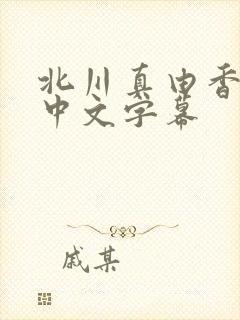 北川真由香
中文字幕
戚某